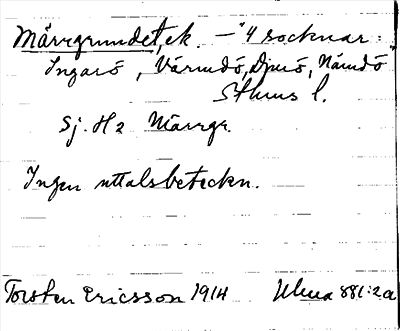 Märrgrundet, ek. — "4 socknar:
Ingarö, Värmdö, Djurö, Nämdö"
Sthms l.
Sj. H2 Märrgr.
Ingen uttalsbeteckn.
Torsten Ericsson 1914 Ulma 881:2a